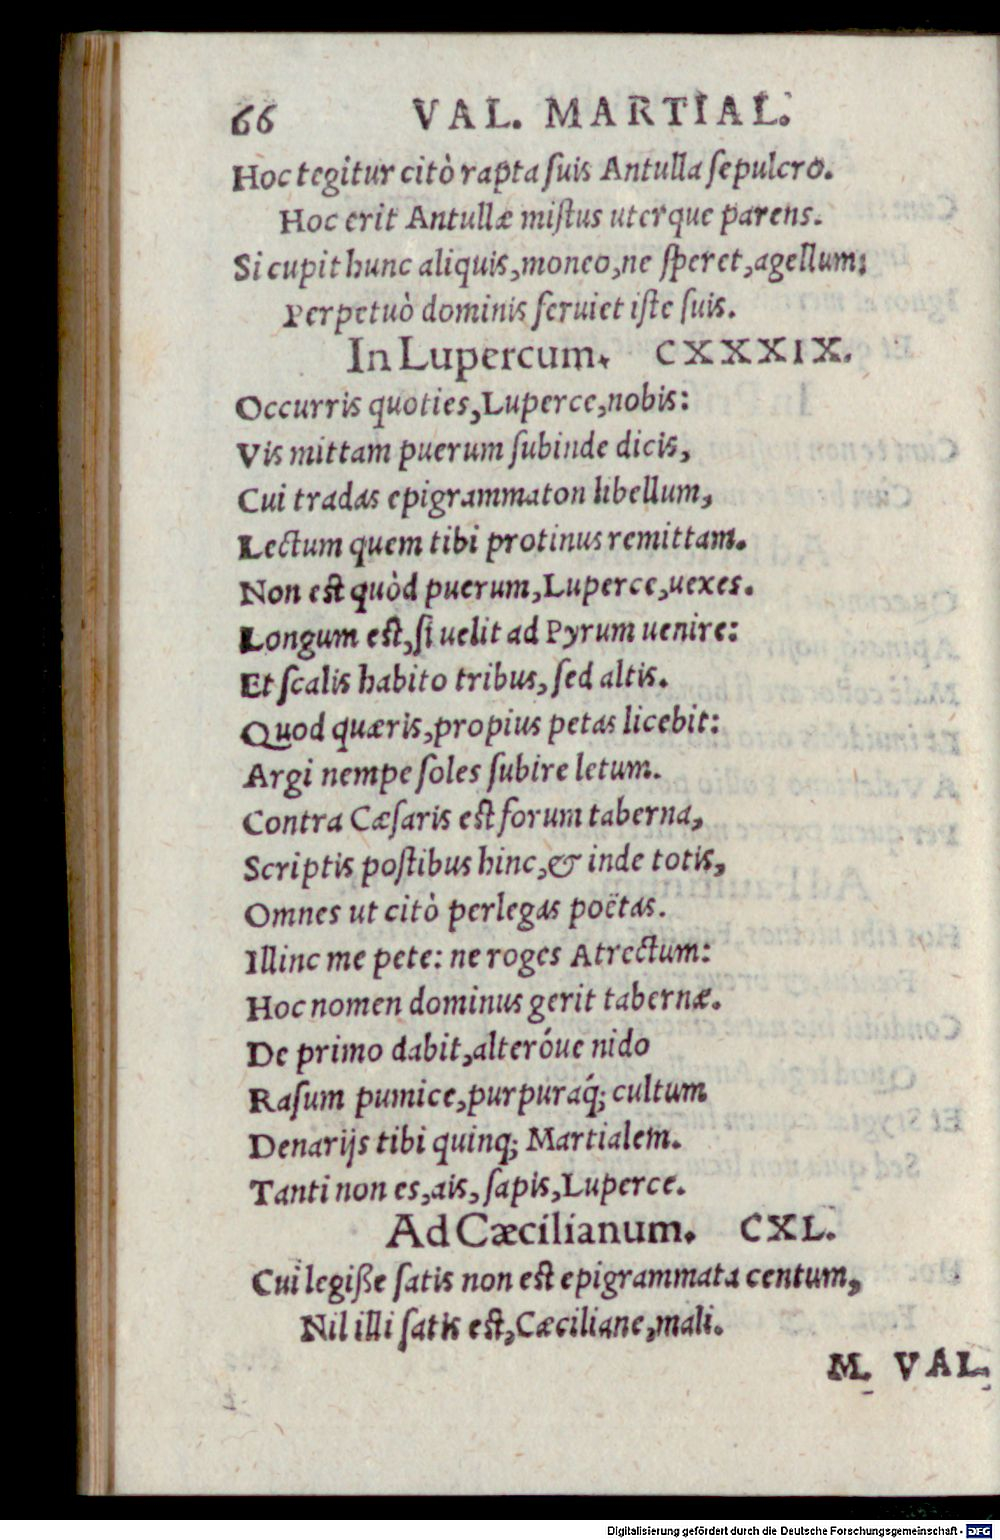 66 VAL. MARTIAL.
Hoc tegitur citò rapta ſuis Antulla ſepulcro.
Hoc erit Antullæ miſtus uterque parens.
Si cupit hunc aliquis, moneo, ne ſperet, agellum:
Perpetuò dominis ſeruiet iſte ſuis.
In Lupercum. CXXXIX.
Occurris quoties, Luperce, nobis:
Vis mittam puerum ſubinde dicis,
Cui tradas epigrammaton libellum,
Lectum quem tibi protinus remittam.
Non est quòd puerum, Luperce, uexes.
Longum est, ſi uelit ad Pyrum uenire:
Et ſcalis habito tribus, ſed altis.
Quod quæris, propius petas licebit:
Argi nempe ſoles ſubire letum.
Contra Cæſaris est forum taberna,
Scriptis poſtibus hinc, & inde totis,
Omnes ut citò perlegas poëtas.
Illinc me pete: ne roges Atrectum:
Hoc nomen dominus gerit tabernæ.
De primo dabit, alteróue nido
Raſum pumice, purpuraq́; cultum
Denarijs tibi quinq; Martialem.
Tanti non es, ais, ſapis, Luperce.
Ad Cæcilianum. CXL.
Cui legiſſe ſatis non est epigrammata centum,
Nil illi ſatis est, Cæciliane, mali.
M. VAL.
Digitalisierung gefördert durch die Deutsche Forschungsgemeinschaft - DFG